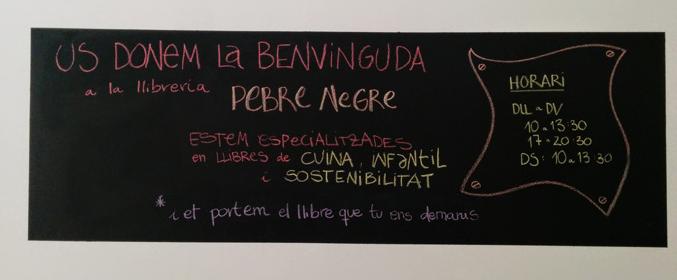 US DONEM La BENVINGUDA
a la llibreria PEBRE NEGRE
ESTEM ESPECIALITZADES
en LLIBRES de CUINA, INFaNTiL
i SOSTENIBILITAT
* i et portem el llibre que tu ens demanis
HORARi
DLL a DV
10 a 13:30
17 a 20:30
DS: 10 a 13 30